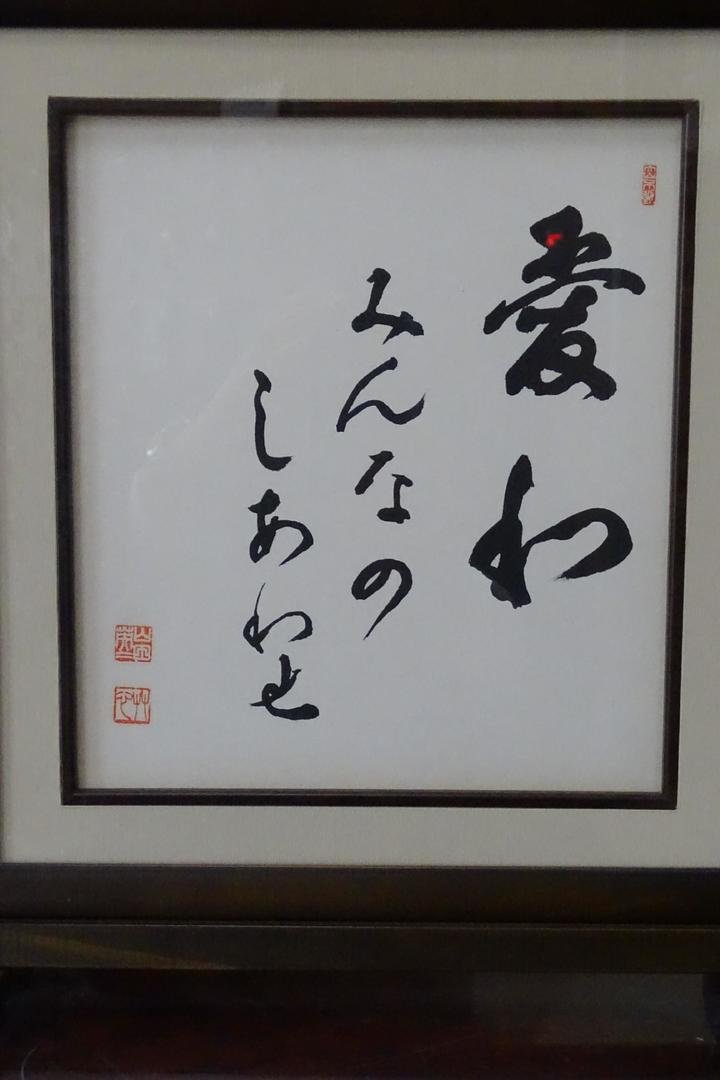 愛和
みんなの
しあわせ